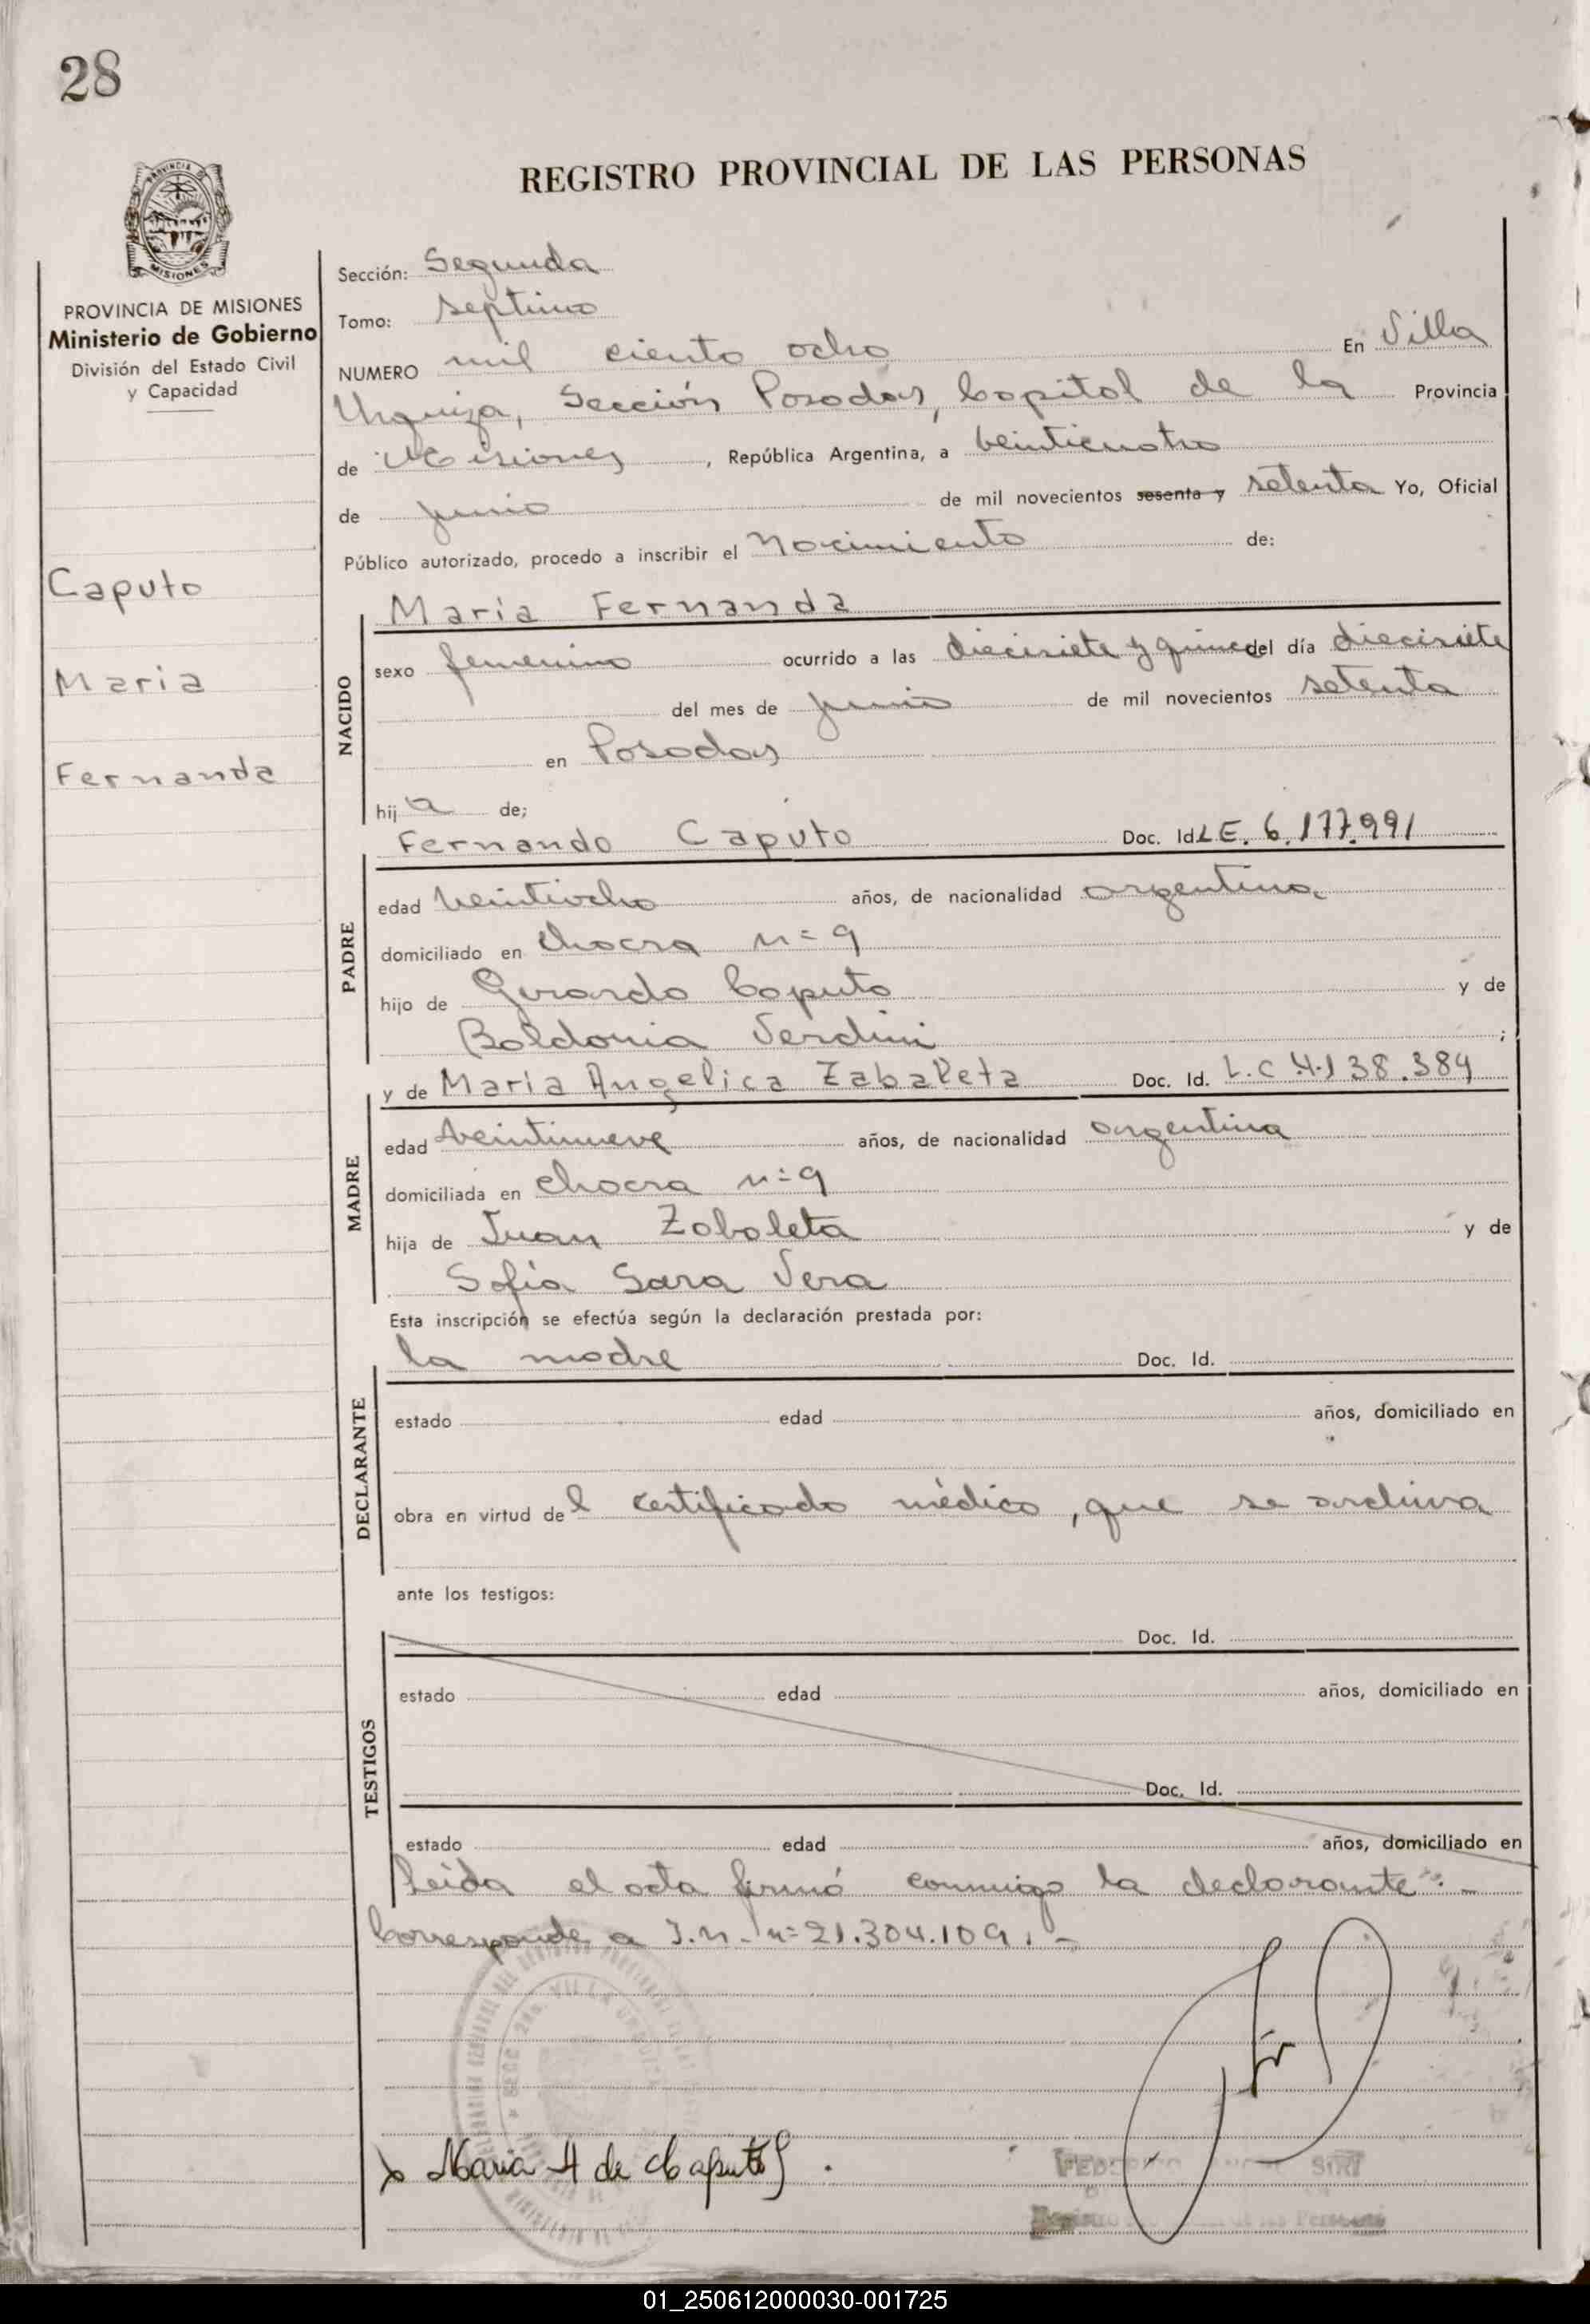 28
REGISTRO PROVINCIAL DE LAS PERSONAS
PROVINCIA DE MISIONES
MISIONES
PROVINCIA DE MISIONES
Ministerio de Gobierno
División del Estado Civil
y Capacidad
Caputo
Maria
Fernanda
Sección: Segunda
Tomo: septimo
NUMERO mil ciento ocho En Villa
Urquiza, Sección Posadas, Capital de la Provincia
de Misiones, República Argentina, a veinticuatro
de junio de mil novecientos sesenta y setenta Yo, Oficial
Público autorizado, procedo a inscribir el Nacimiento de:
NACIDO
María Fernanda
sexo femenino ocurrido a las diecisiete y quince del día diecisiete
del mes de junio de mil novecientos setenta
en Posadas
hija de;
PADRE
Fernando Caputo Doc. Id. L.E. 6.177.991
edad veintiocho años, de nacionalidad argentina
domiciliado en chacra n=9
hijo de Gerardo Caputo y de
Baldonia Verdini ;
MADRE
y de Maria Angelica Zabaleta Doc. Id. L.C 4.138.384
edad veintinueve años, de nacionalidad argentina
domiciliada en chacra n=9
hija de Juan Zabaleta y de
Sofía Sara Vera
Esta inscripción se efectúa según la declaración prestada por:
DECLARANTE
la madre Doc. Id.
estado edad años, domiciliado en
obra en virtud del certificado médico, que se archiva
ante los testigos:
TESTIGOS
Doc. Id.
estado edad años, domiciliado en
Doc. Id.
estado edad años, domiciliado en
Leída el acta firmó conmigo la declarante.-
Corresponde a I.N. n=21.304.109.-
Maria A de Caputo
01_250612000030-001725